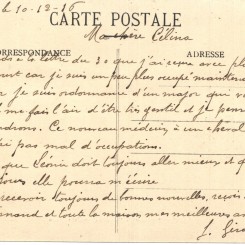 le 10-12-16
CARTE POSTALE
Ma chère Célina
CORRESPONDANCE
ADRESSE
ta lettre du 30 que j'ai reçue avec
car je suis un peu plus occupé maintenant
je suis ordonnance d'un major qui
me fais l'air d'être bien gentil et je pense
Ce nouveau médecin a un cheval
pas mal d'occupations.
que Léonie doit toujours aller mieux et
elle pourra m'écrire
recevoir toujours de bonnes nouvelles, reçois
et toute la maison mes meilleures